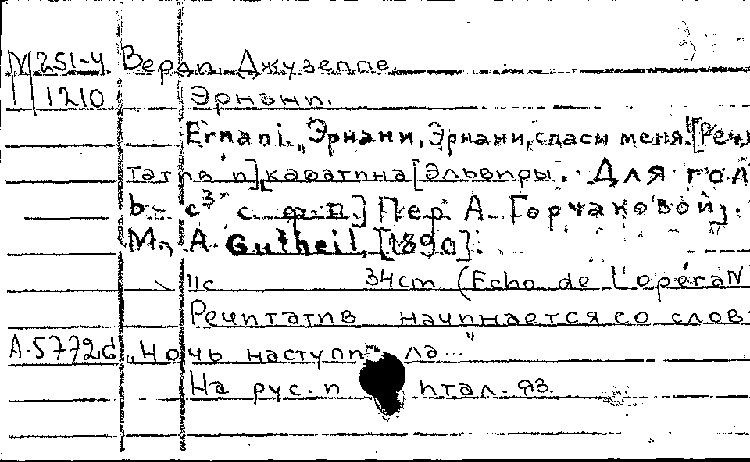 М 251-4 Верди Джузеппе
1210 Эрнани.
Ernani. „Эрнани, Эрнани, спаси меня" [Речи
татив и] каватина [Эльвиры. Для гол
b - c³ с ф-п.] Пер. А. Горчаковой].
М., A. Gutheil, [1890].
11с 34cm (Echo de l'opéra N
Речитатив начинается со слов
А.5772б „Ночь наступила..."
На рус. и итал. яз.